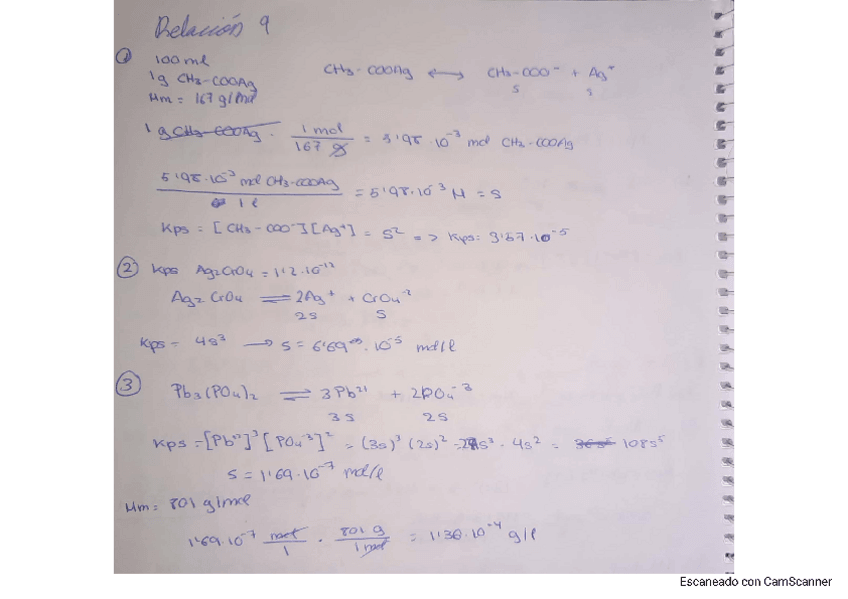 Relación 9
① 100 ml
1g CH3-COOAg
CH3-COOAg ⟷ CH3-COO⁻ + Ag⁺
s s
Mm = 167 g/mol
1 g CH3-COOAg · 1 mol / 167 g = 5'98·10⁻³ mol CH3-COOAg
5'98·10⁻³ mol CH3-COOAg / 1 l = 5'98·10⁻³ M = s
Kps = [CH3-COO⁻][Ag⁺] = s² => Kps: 3'57·10⁻⁵
② Kps Ag2CrO4 = 1'2·10⁻¹²
Ag2CrO4 ⇌ 2Ag⁺ + CrO4⁻²
2s s
Kps = 4s³ → s = 6'69·10⁻⁵ mol/l
③ Pb3(PO4)2 ⇌ 3Pb²⁺ + 2PO4⁻³
3s 2s
Kps = [Pb²⁺]³ [PO4⁻³]² = (3s)³ (2s)² = 27s³ · 4s² = 108s⁵
s = 1'69·10⁻⁷ mol/l
Mm = 801 g/mol
1'69·10⁻⁷ mol / 1 · 801 g / 1 mol = 1'36·10⁻⁴ g/l
Escaneado con CamScanner